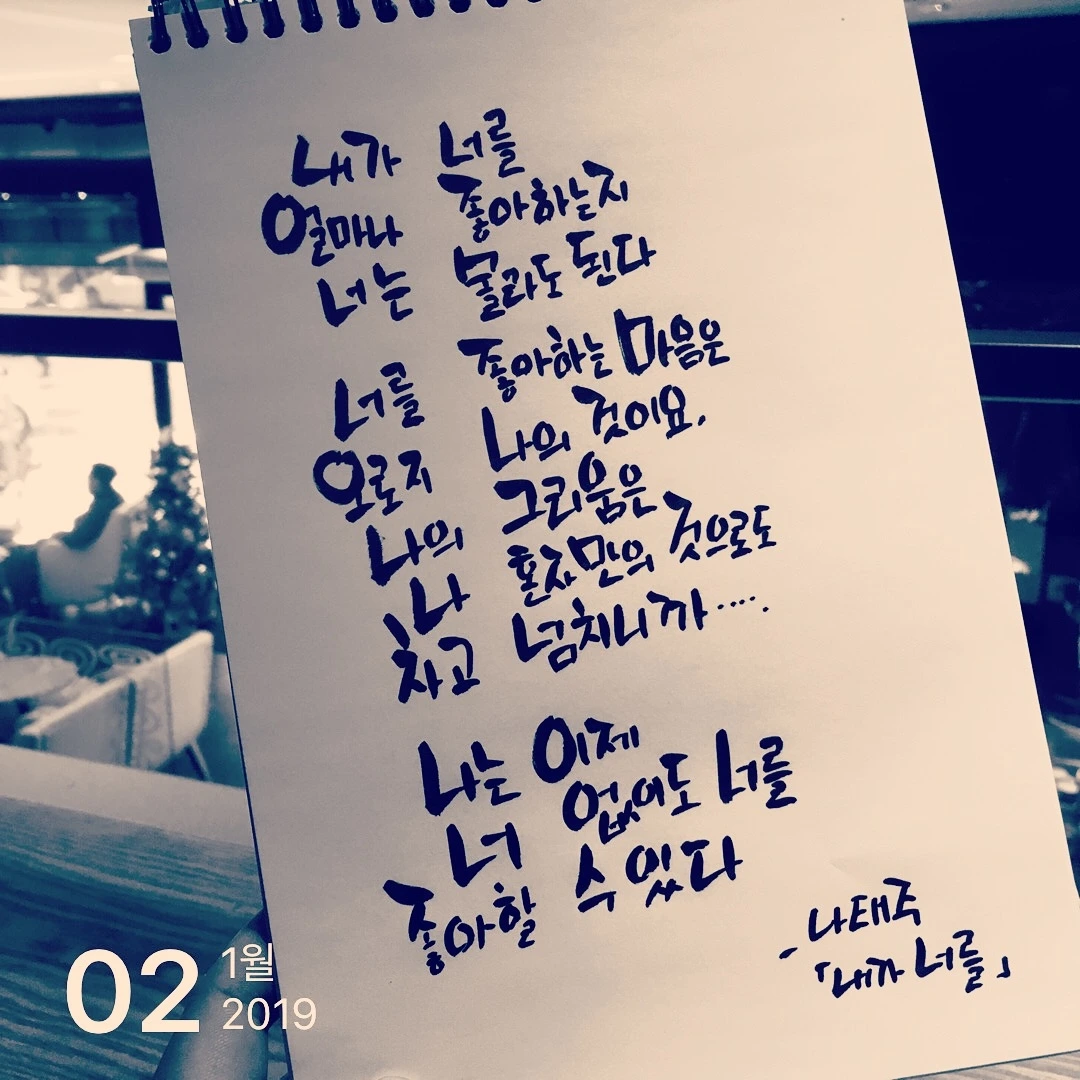 내가 너를
얼마나 좋아하는지
너는 몰라도 된다
너를 좋아하는 마음은
오로지 나의 것이요,
나의 그리움은
나 혼자만의 것으로도
차고 넘치니까·····
나는 이제
너 없이도 너를
좋아할 수 있다
- 나태주
「내가 너를」
02 1월
2019